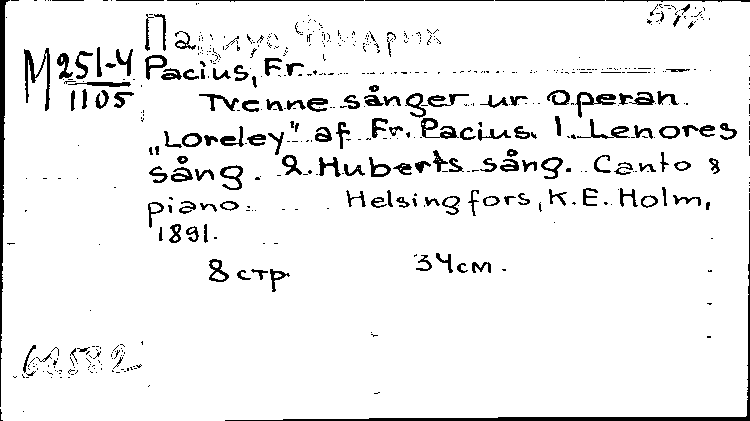 Пациус, Фридрих
М 251-4
1105
Pacius, Fr.
Tvenne sånger ur operan
„Loreley" af Fr. Pacius. 1. Lenores
sång. 2. Huberts sång. Canto &
piano. Helsingfors, K. E. Holm,
1891.
8 стр. 34 см.
62582